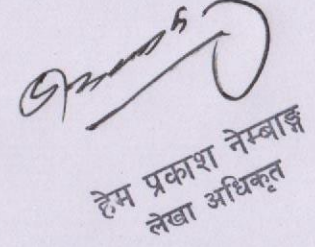 हेम प्रकाश नेम्बाङ्ग
लेखा अधिकृत